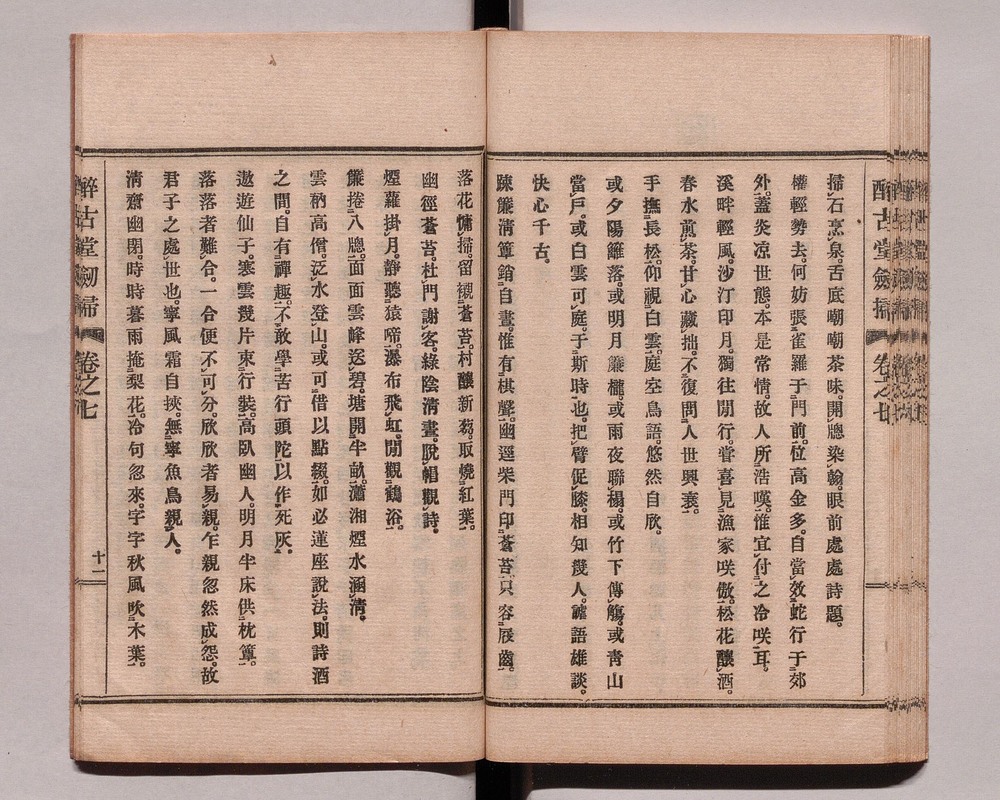 醉古堂劒掃 卷之七
掃石烹泉。舌底嘲嘲茶味。開牕染翰。眼前處處詩題。
權輕勢去。何妨張雀羅于門前。位高金多。自當效蛇行于郊
外。蓋炎凉世態。本是常情。故人所浩嘆。惟宜付之冷咲耳。
溪畔輕風。沙汀印月。獨往閒行。嘗喜見漁家咲傲。松花釀酒。
春水煎茶。甘心藏拙。不復問人世興衰。
手撫長松。仰視白雲。庭空鳥語。悠然自欣。
或夕陽籬落。或明月簾櫳。或雨夜聯榻。或竹下傳觴。或靑山
當戶。或白雲可庭。于斯時也。把臂促膝。相知幾人。謔語雄談。
快心千古。
疎簾淸簟。銷白晝。惟有棋聲。幽逕柴門。印蒼苔。只容屐齒。
落花慵掃。留襯蒼苔。村釀新蒭。取燒紅葉。
幽徑蒼苔。杜門謝客。綠陰淸晝。脫帽觀詩。
煙蘿掛月。靜聽猿啼。瀑布飛虹。閒觀鶴浴。
簾捲八牕。面面雲峰送碧。塘開半畝。瀟湘煙水涵淸。
雲衲高僧。泛水登山。或可借以點綴。如必蓮座說法。則詩酒
之間。自有禪趣。不敢學苦行頭陀。以作死灰。
遨遊仙子。寒雲幾片束行裝。高臥幽人。明月半床供枕簟。
落落者難合。一合便不可分。欣欣者易親。乍親忽然成怨。故
君子之處世也。寧風霜自挾。無寧魚鳥親人。
淸齋幽閉。時時暮雨掩梨花。冷句忽來。字字秋風吹木葉。
醉古堂劒掃 卷之七 十